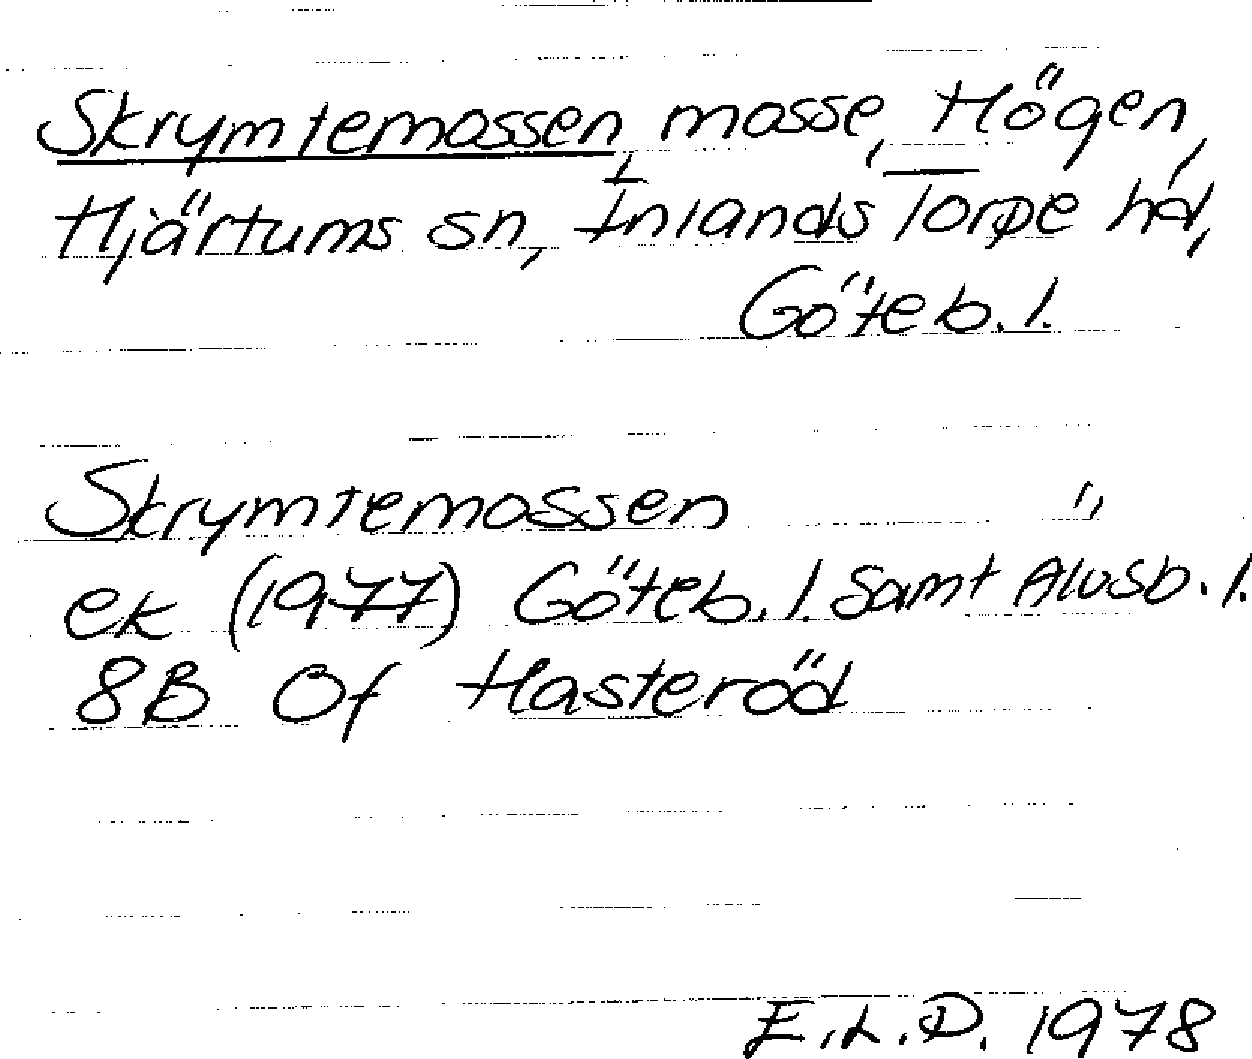 Skrymtemossen, mosse, Högen,
Hjärtums sn, Inlands Torpe hd,
Göteb. l.
Skrymtemossen "
ek (1977) Göteb. l. samt Älvsb. l.
8B 0f Hasteröd
E.L.D. 1978